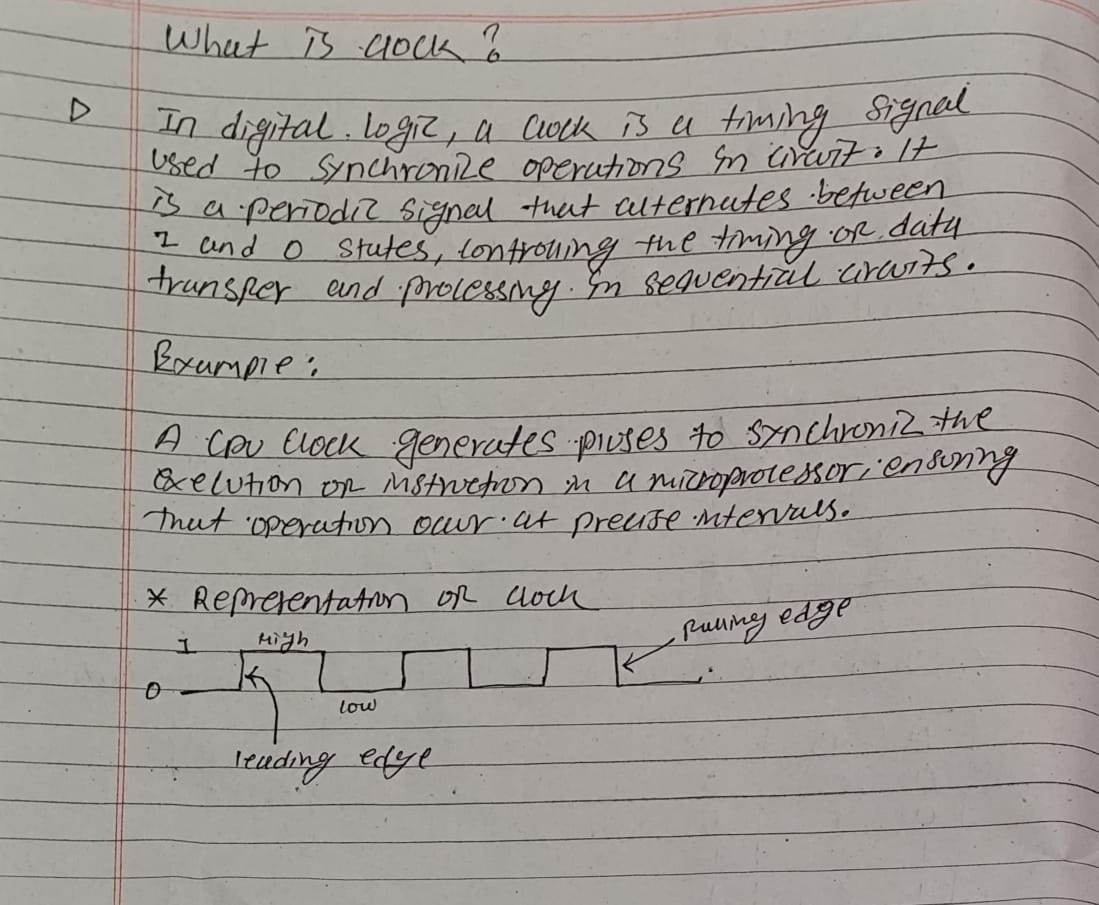 What is clock?
▷ In digital. logic, a clock is a timing signal
used to synchronize operations in circuit. It
is a periodic signal that alternates between
1 and 0 states, controlling the timing of data
transfer and processing in sequential circuits.
Example:
A CPU clock generates pluses to synchroniz the
execution of instruction in a microprocessor, ensuring
that operation occur at precise intervals.
* Representation of clock
falling edge
1 High
0
low
leading edge